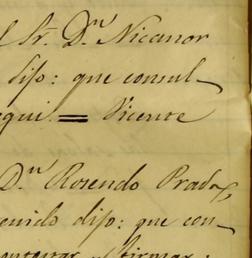 l Sr. Dn Nicanor
dijo: que consul-
equi = Vicente
Dn Rosendo Prada
enido dijo: que con-
firmar